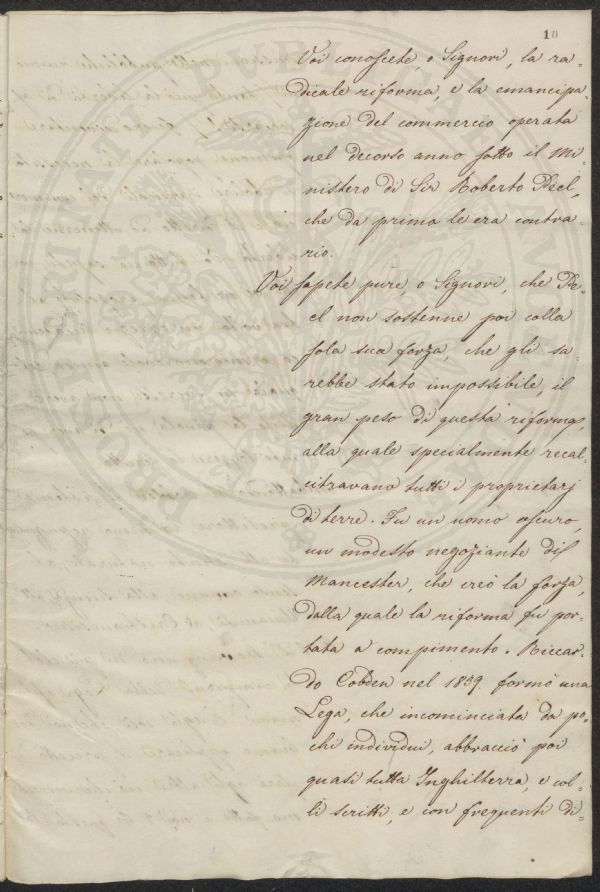 10
Voi conoscete, o Signori, la ra=
dicale riforma, e la emancipa=
zione del commercio operata
nel decorso anno sotto il Mi=
nistero di Sir Roberto Peel,
che da prima le era contra=
rio.
Voi sapete pure, o Signori, che Pe=
el non sostenne poi colla
sola sua forza, che gli sa=
rebbe stato impossibile, il
gran peso di questa riforma,
alla quale specialmente recal=
citravano tutti i proprietarj
di terre. Fu un uomo oscuro,
un modesto negoziante di
Mancester, che creò la forza,
dalla quale la riforma fu por=
tata a compimento. Riccar=
do Cobden nel 1839 formò una
Lega, che incominciata da po=
chi individui, abbracciò poi
quasi tutta Inghilterra, e col=
li scritti, e con frequenti di=